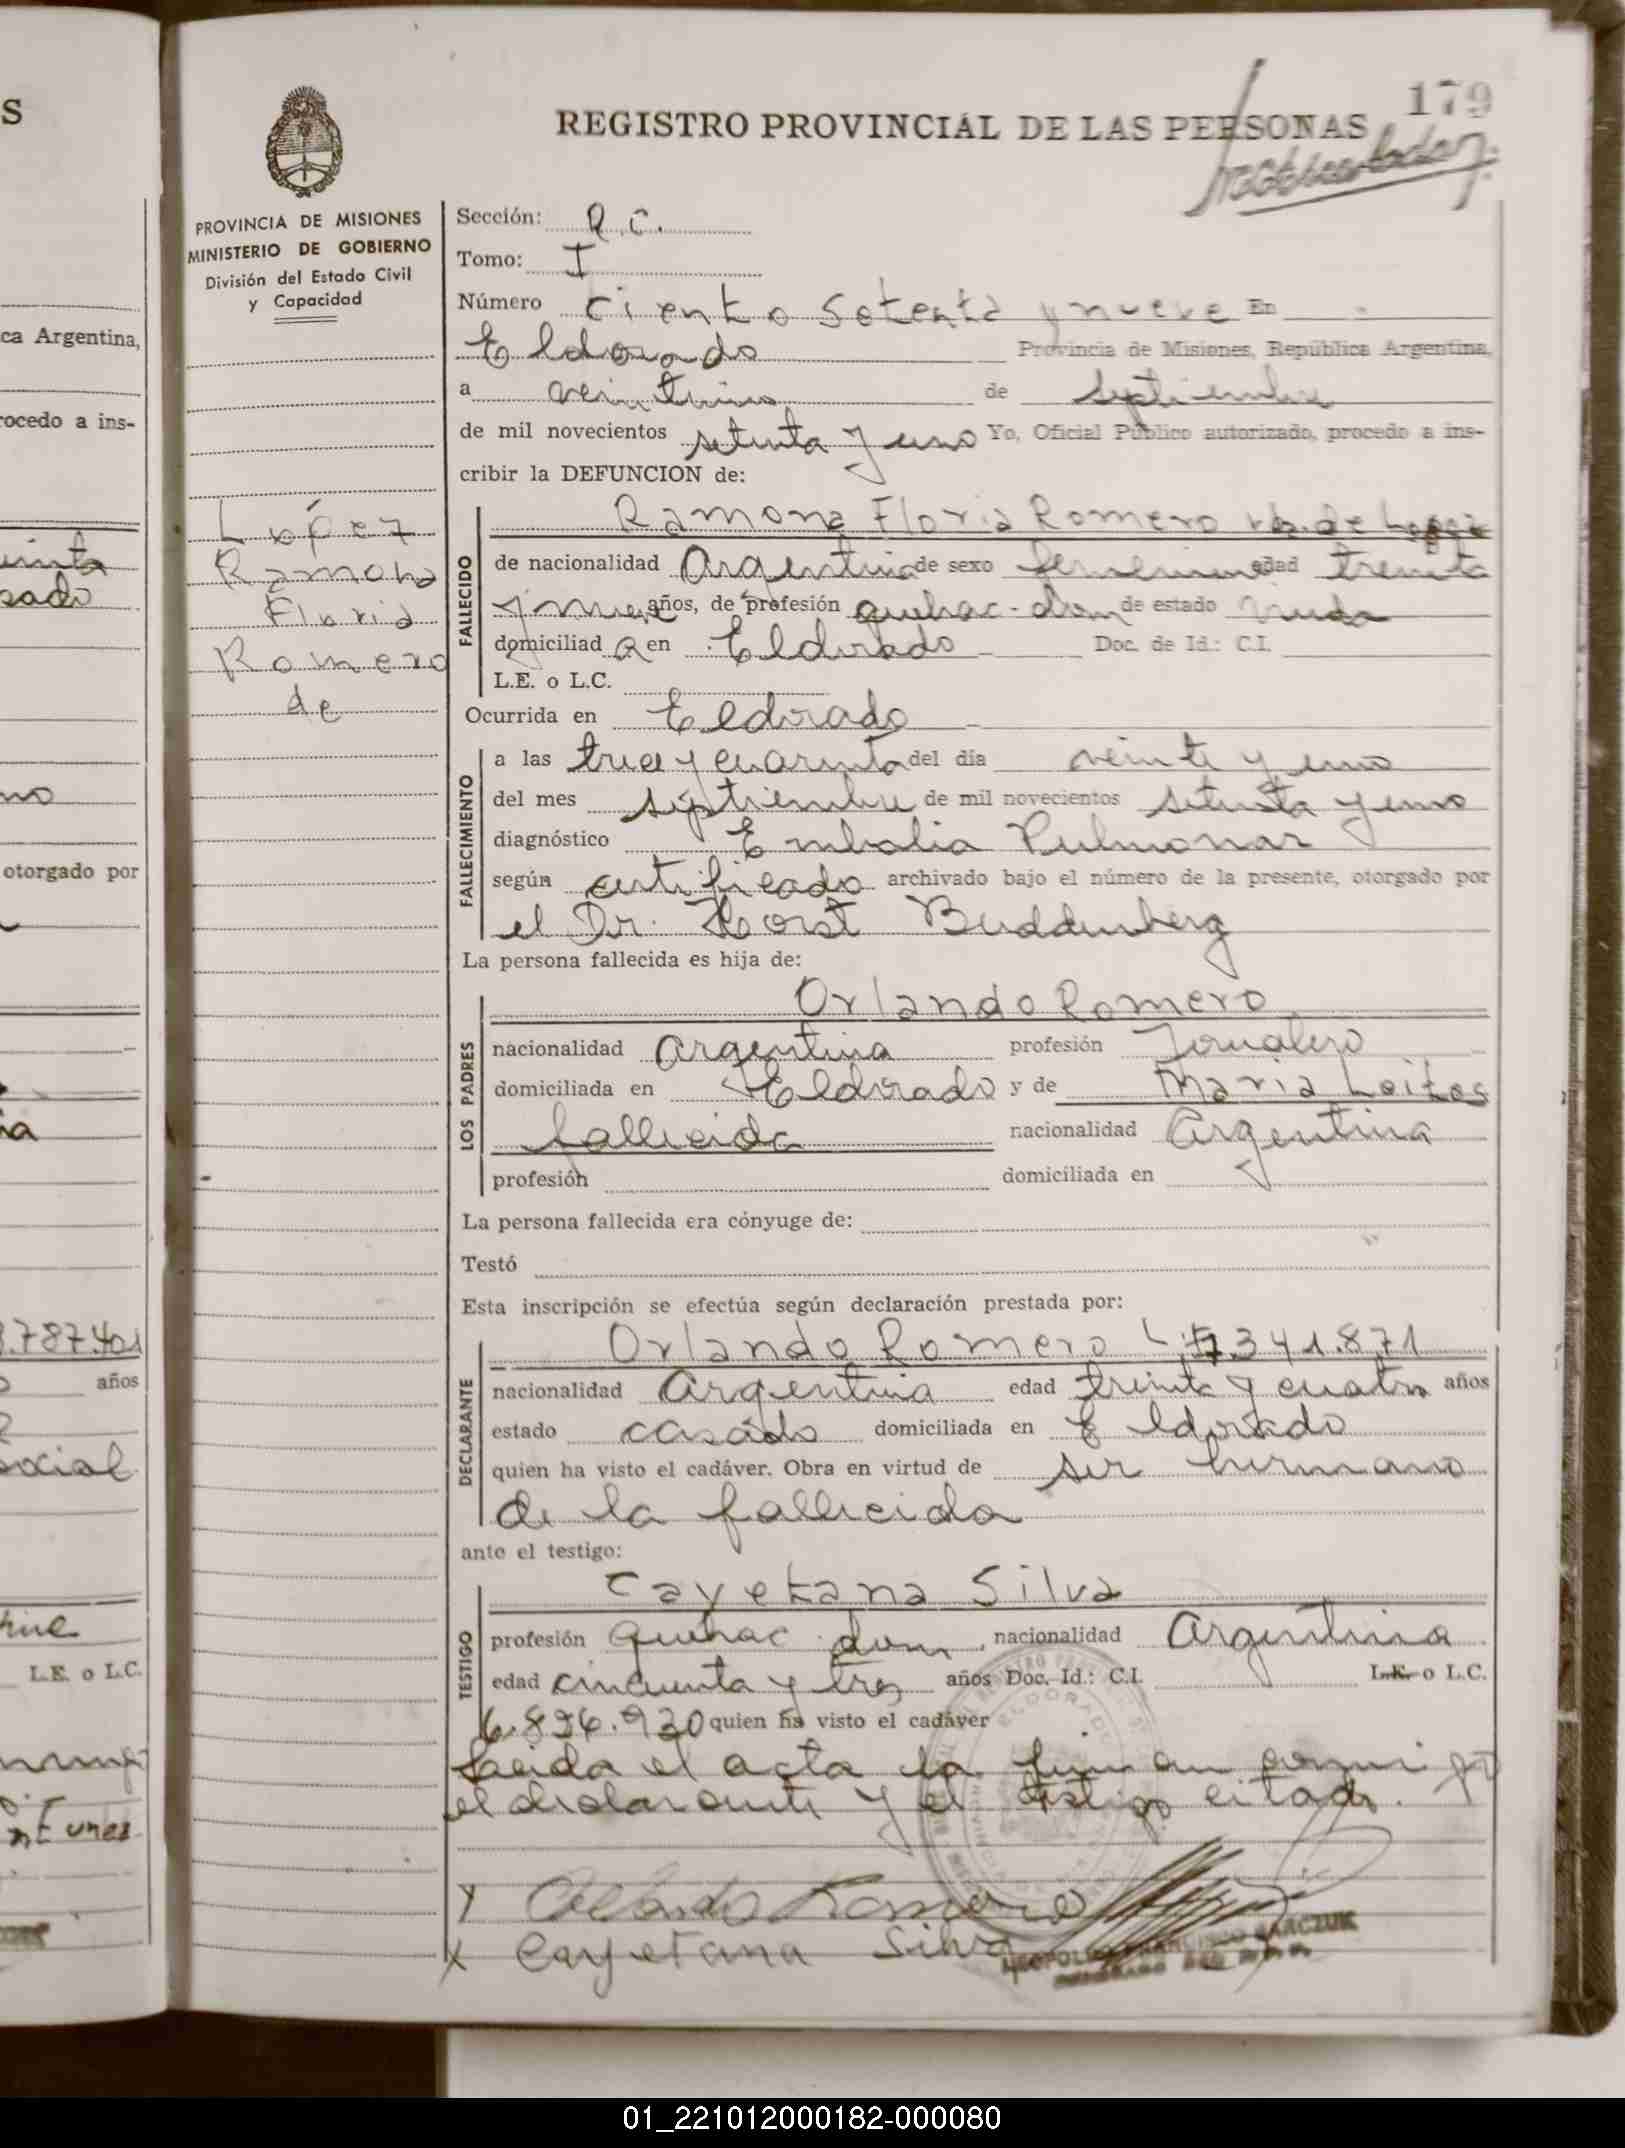 179
REGISTRO PROVINCIAL DE LAS PERSONAS
PROVINCIA DE MISIONES
MINISTERIO DE GOBIERNO
División del Estado Civil
y Capacidad
López
Ramona
Floria
Romero
de
Sección: R.C.
Tomo: I
Número ciento setenta y nueve En
Eldorado Provincia de Misiones, República Argentina,
a veintiuno de septiembre
de mil novecientos setenta y uno Yo, Oficial Público autorizado, procedo a ins-
cribir la DEFUNCION de:
FALLECIDO
Ramona Floria Romero vda. de
de nacionalidad Argentina de sexo femenino edad treinta
y nueve años, de profesión quehac. dom de estado viuda
domiciliad a en Eldorado Doc. de Id.: C.I.
L.E. o L.C.
Ocurrida en Eldorado
FALLECIMIENTO
a las trece y cuarenta del día veinte y uno
del mes septiembre de mil novecientos setenta y uno
diagnóstico Embolia Pulmonar
según certificado archivado bajo el número de la presente, otorgado por
el Dr. Horst Buddenberg
La persona fallecida es hija de:
LOS PADRES
Orlando Romero
nacionalidad Argentina profesión Jornalero
domiciliada en Eldorado y de Maria Leites
fallecida nacionalidad Argentina
profesión domiciliada en
La persona fallecida era cónyuge de:
Testó
Esta inscripción se efectúa según declaración prestada por:
DECLARANTE
Orlando Romero 7.341.871
nacionalidad Argentina edad treinta y cuatro años
estado casado domiciliada en Eldorado
quien ha visto el cadáver. Obra en virtud de ser hermano
de la fallecida
ante el testigo:
TESTIGO
Cayetana Silva
profesión quehac. dom. nacionalidad Argentina
edad cincuenta y tres años Doc. Id.: C.I. L.E. o L.C.
quien ha visto el cadáver
Leida el acta la firman conmigo
el declarante y el testigo citado.
Orlando Romero
Cayetana Silva
ca Argentina,
rocedo a ins-
otorgado por
8.787.401
años
social
L.E. o L.C.
01_221012000182-000080